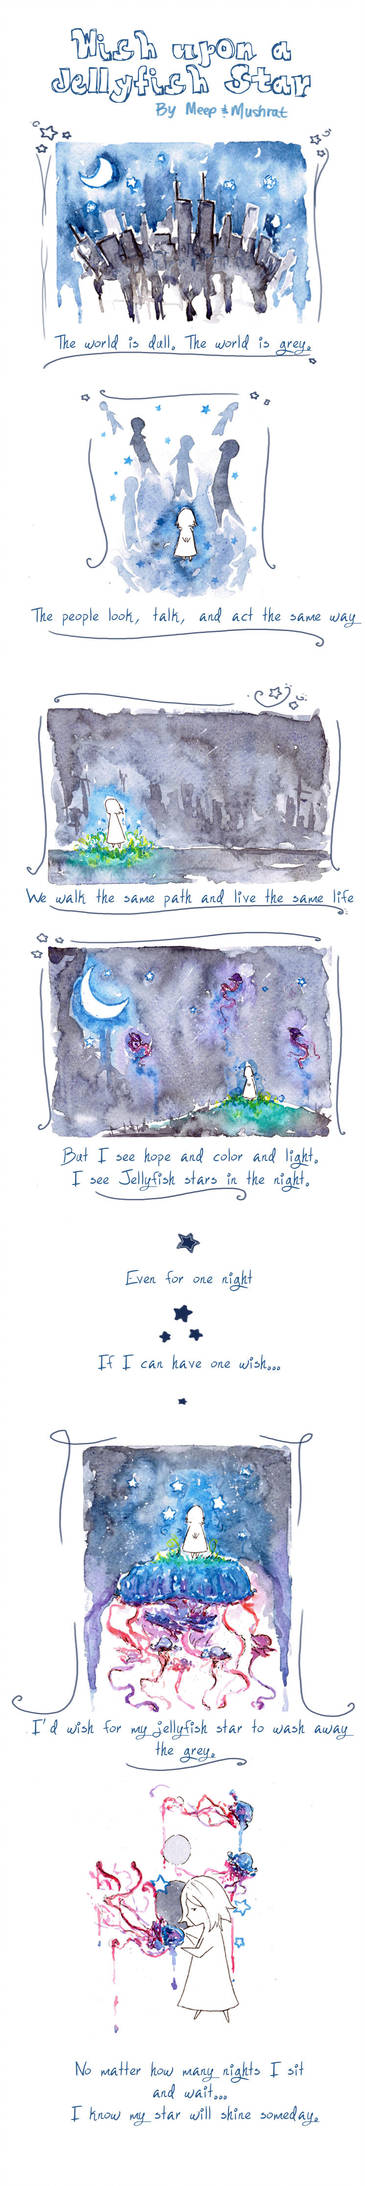 Wish upon a
Jellyfish Star
By Meep & Mushrat
The world is dull. The world is grey.
The people look, talk, and act the same way
We walk the same path and live the same life
But I see hope and color and light.
I see Jellyfish stars in the night.
Even for one night
If I can have one wish...
I'd wish for my jellyfish star to wash away
the grey.
No matter how many nights I sit
and wait...
I know my star will shine someday.